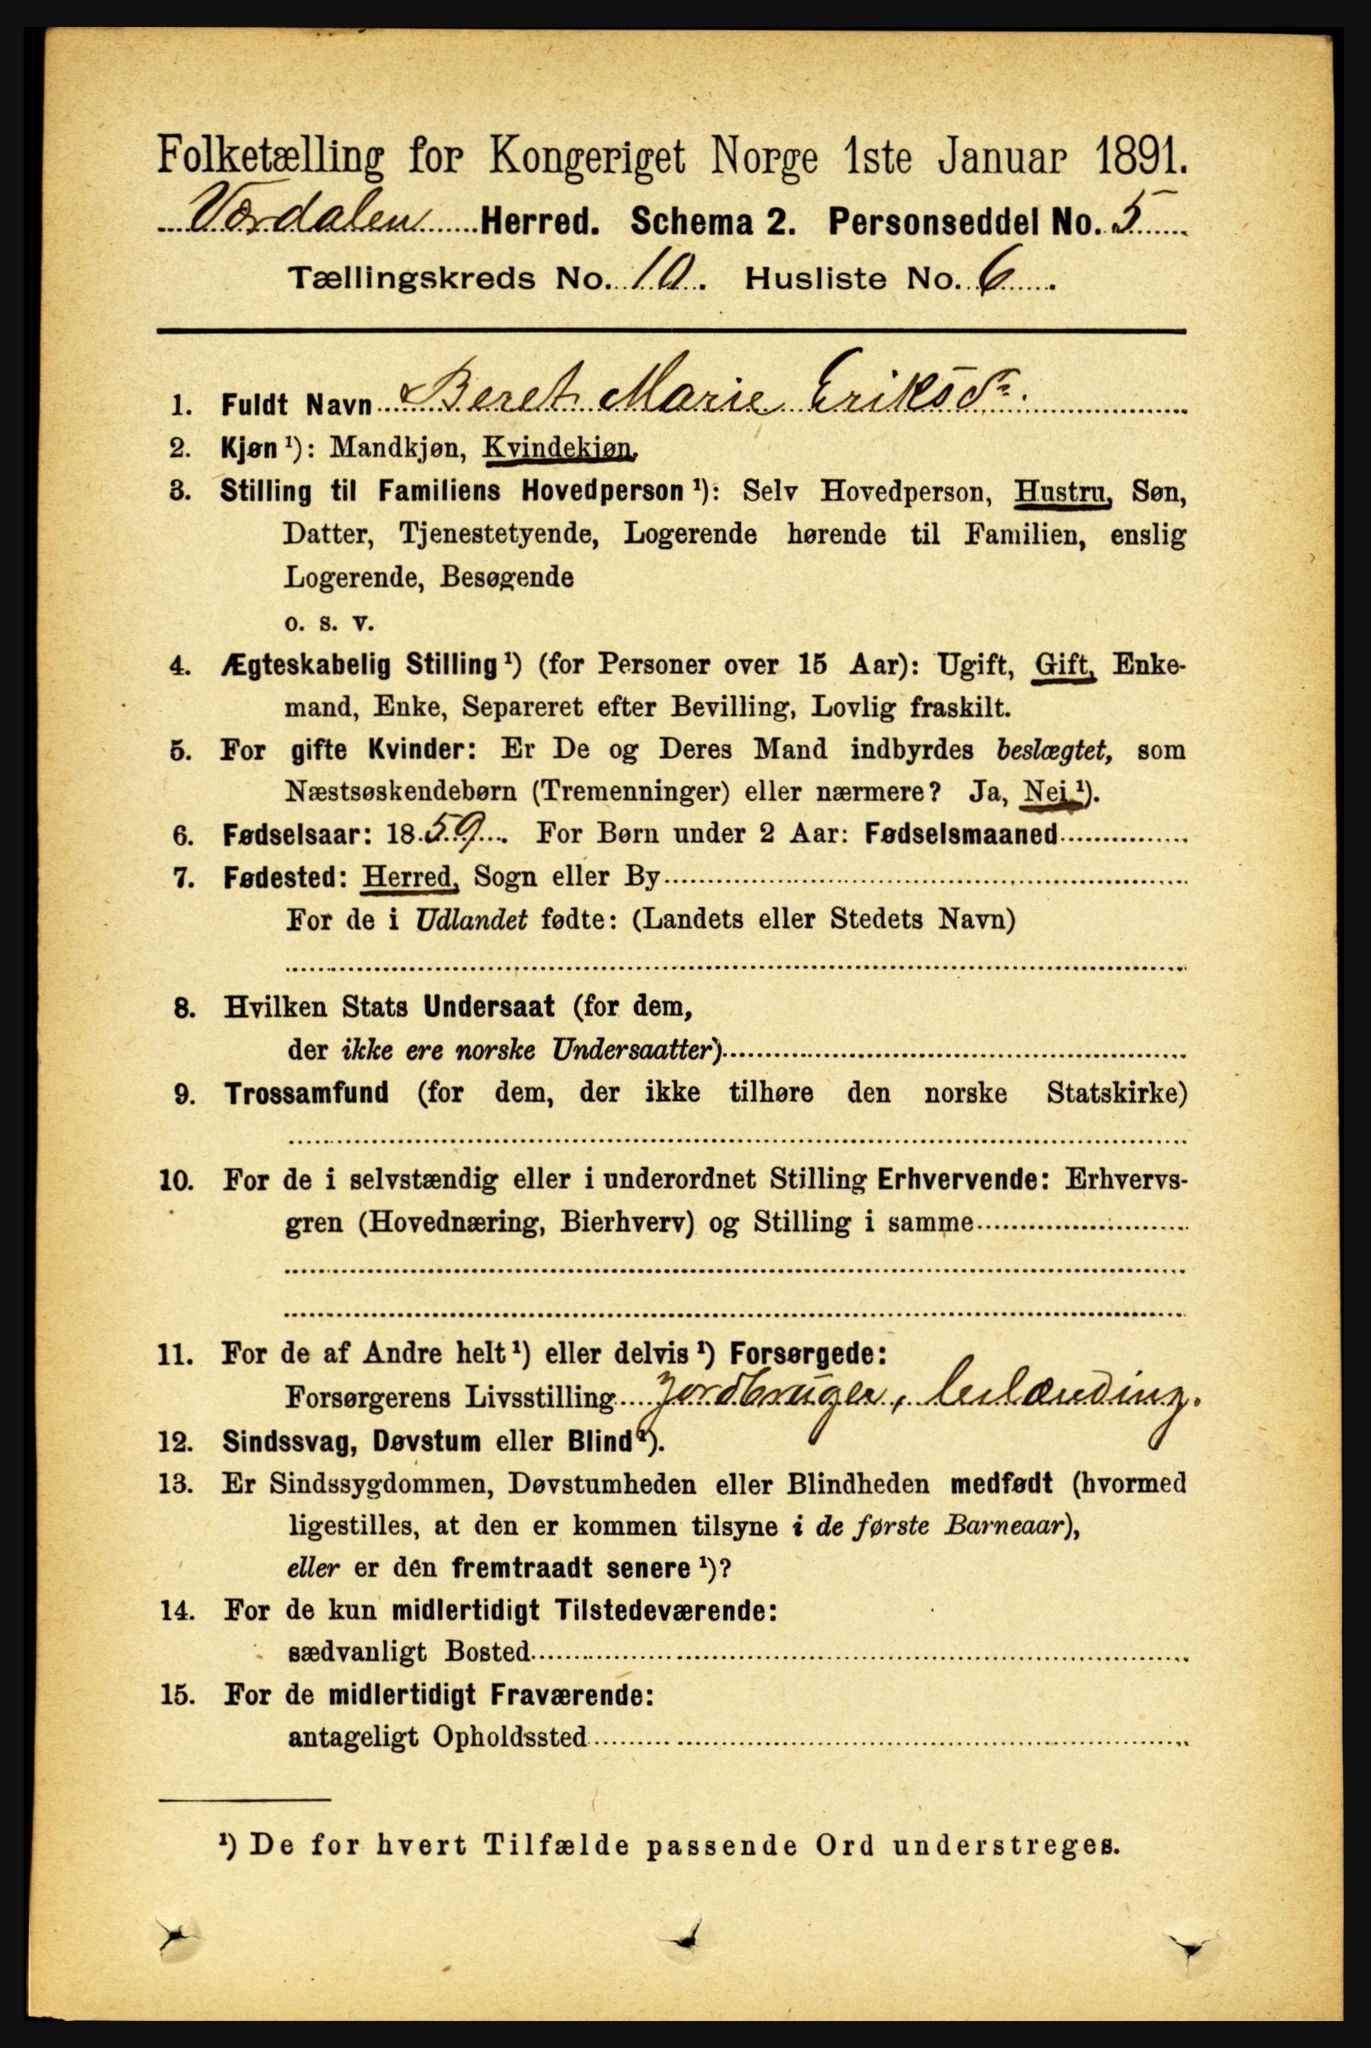 Folketælling for Kongeriget Norge 1ste Januar 1891.
Værdalen Herred. Schema 2. Personseddel No. 5
Tællingskreds No. 10. Husliste No. 6
1. Fuldt Navn Beret Marie Eriksdr.
2. Kjøn ¹): Mandkjøn, Kvindekjøn.
3. Stilling til Familiens Hovedperson ¹): Selv Hovedperson, Hustru, Søn,
Datter, Tjenestetyende, Logerende hørende til Familien, enslig
Logerende, Besøgende
o. s. v.
4. Ægteskabelig Stilling ¹) (for Personer over 15 Aar): Ugift, Gift, Enke-
mand, Enke, Separeret efter Bevilling, Lovlig fraskilt.
5. For gifte Kvinder: Er De og Deres Mand indbyrdes beslægtet, som
Næstsøskendebørn (Tremenninger) eller nærmere? Ja, Nei ¹).
6. Fødselsaar: 1859. For Børn under 2 Aar: Fødselsmaaned
7. Fødested: Herred, Sogn eller By
For de i Udlandet fødte: (Landets eller Stedets Navn)
8. Hvilken Stats Undersaat (for dem,
der ikke ere norske Undersaatter)
9. Trossamfund (for dem, der ikke tilhøre den norske Statskirke)
10. For de i selvstændig eller i underordnet Stilling Erhvervende: Erhvervs-
gren (Hovednæring, Bierhverv) og Stilling i samme
11. For de af Andre helt ¹) eller delvis ¹) Forsørgede:
Forsørgerens Livsstilling Jordbruger, leilænding.
12. Sindssvag, Døvstum eller Blind ¹).
13. Er Sindssygdommen, Døvstumheden eller Blindheden medfødt (hvormed
ligestilles, at den er kommen tilsyne i de første Barneaar),
eller er den fremtraadt senere ¹)?
14. For de kun midlertidigt Tilstedeværende:
sædvanligt Bosted
15. For de midlertidigt Fraværende:
antageligt Opholdssted
¹) De for hvert Tilfælde passende Ord understreges.